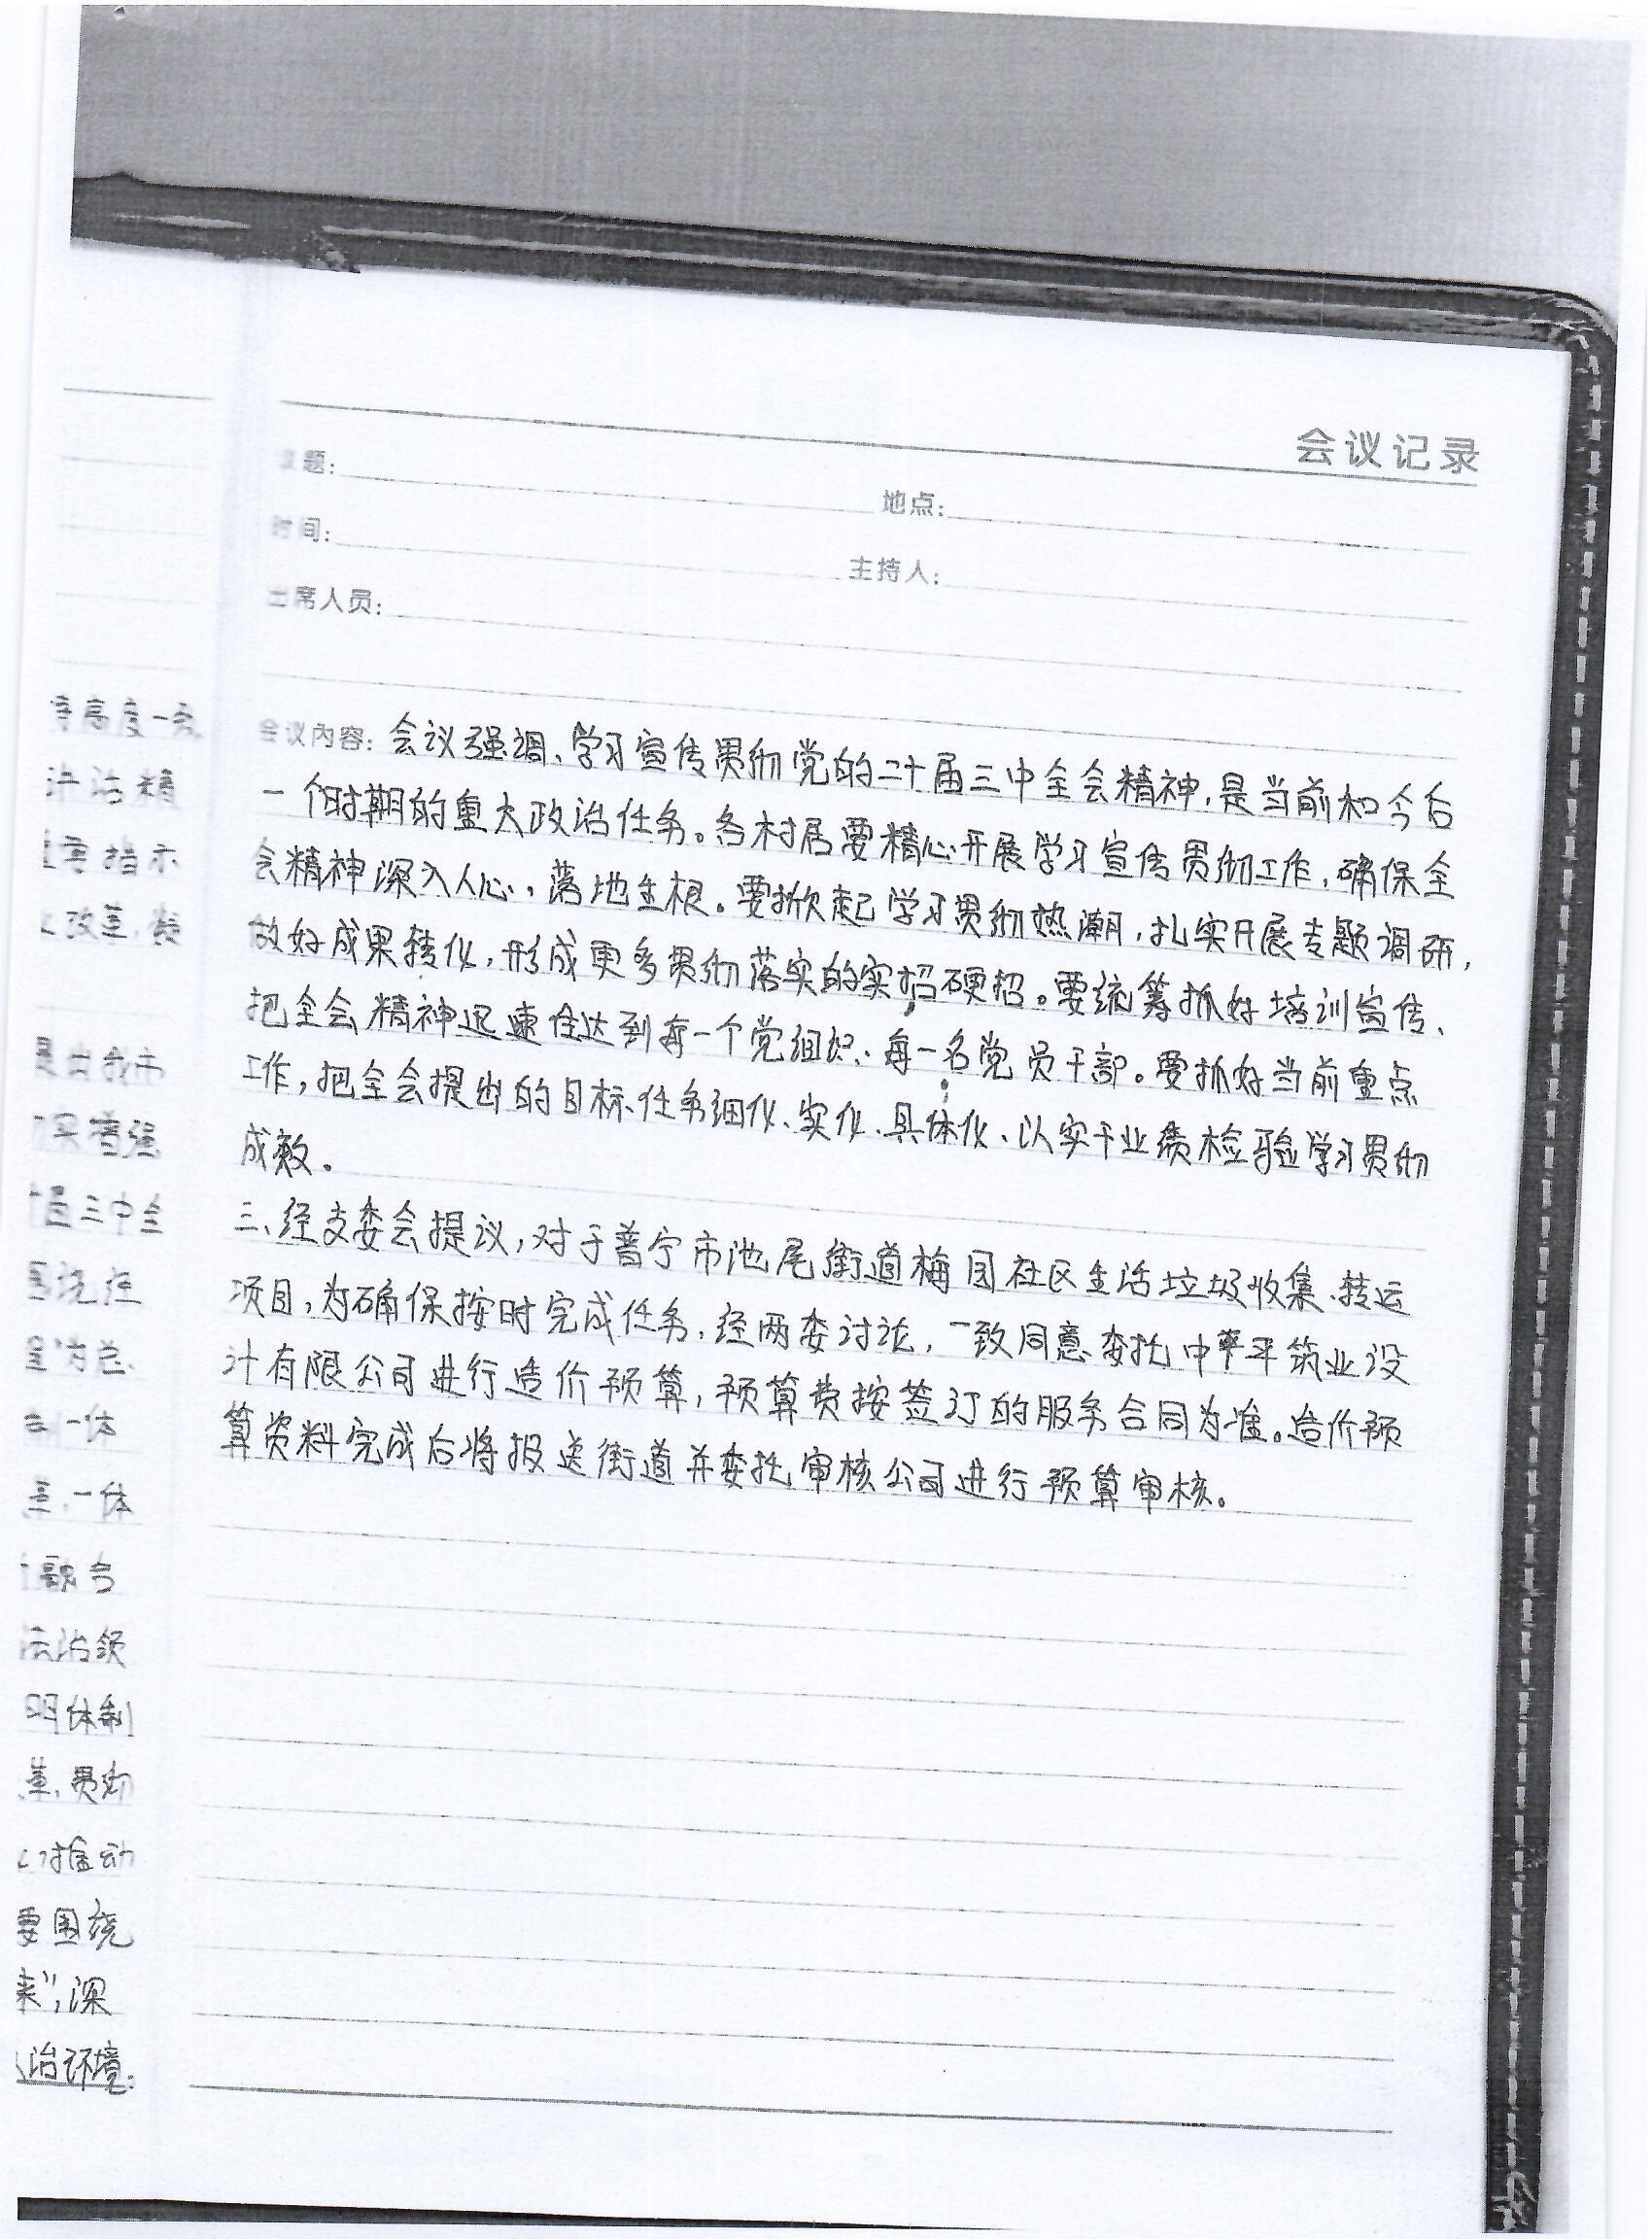 会议记录
议题:
地点:
时间:
主持人:
出席人员:
会议内容: 会议强调、学习宣传贯彻党的二十届三中全会精神,是当前和今后
一个时期的重大政治任务。各村居要精心开展学习宣传贯彻工作,确保全
会精神深入人心,落地生根。要掀起学习贯彻热潮,扎实开展专题调研,
做好成果转化,形成更多贯彻落实的实招硬招。要统筹抓好培训宣传、
把全会精神迅速传达到每一个党组织、每一名党员干部。要抓好当前重点
工作,把全会提出的目标、任务细化、实化、具体化、以实干业绩检验学习贯彻
成效。
三、经支委会提议,对于普宁市池尾街道梅团社区生活垃圾收集、转运
项目,为确保按时完成任务,经两委讨论,一致同意委托中平筑业设
计有限公司进行造价预算,预算费按签订的服务合同为准。造价预
算资料完成后将报送街道并委托审核公司进行预算审核。
高度一致
法治精
重要指示
改革,
是由我市
增强
届三中全
围绕
一体
一体
融合
法治领
体制
贯彻
推动
要围绕
来",深
治环境.